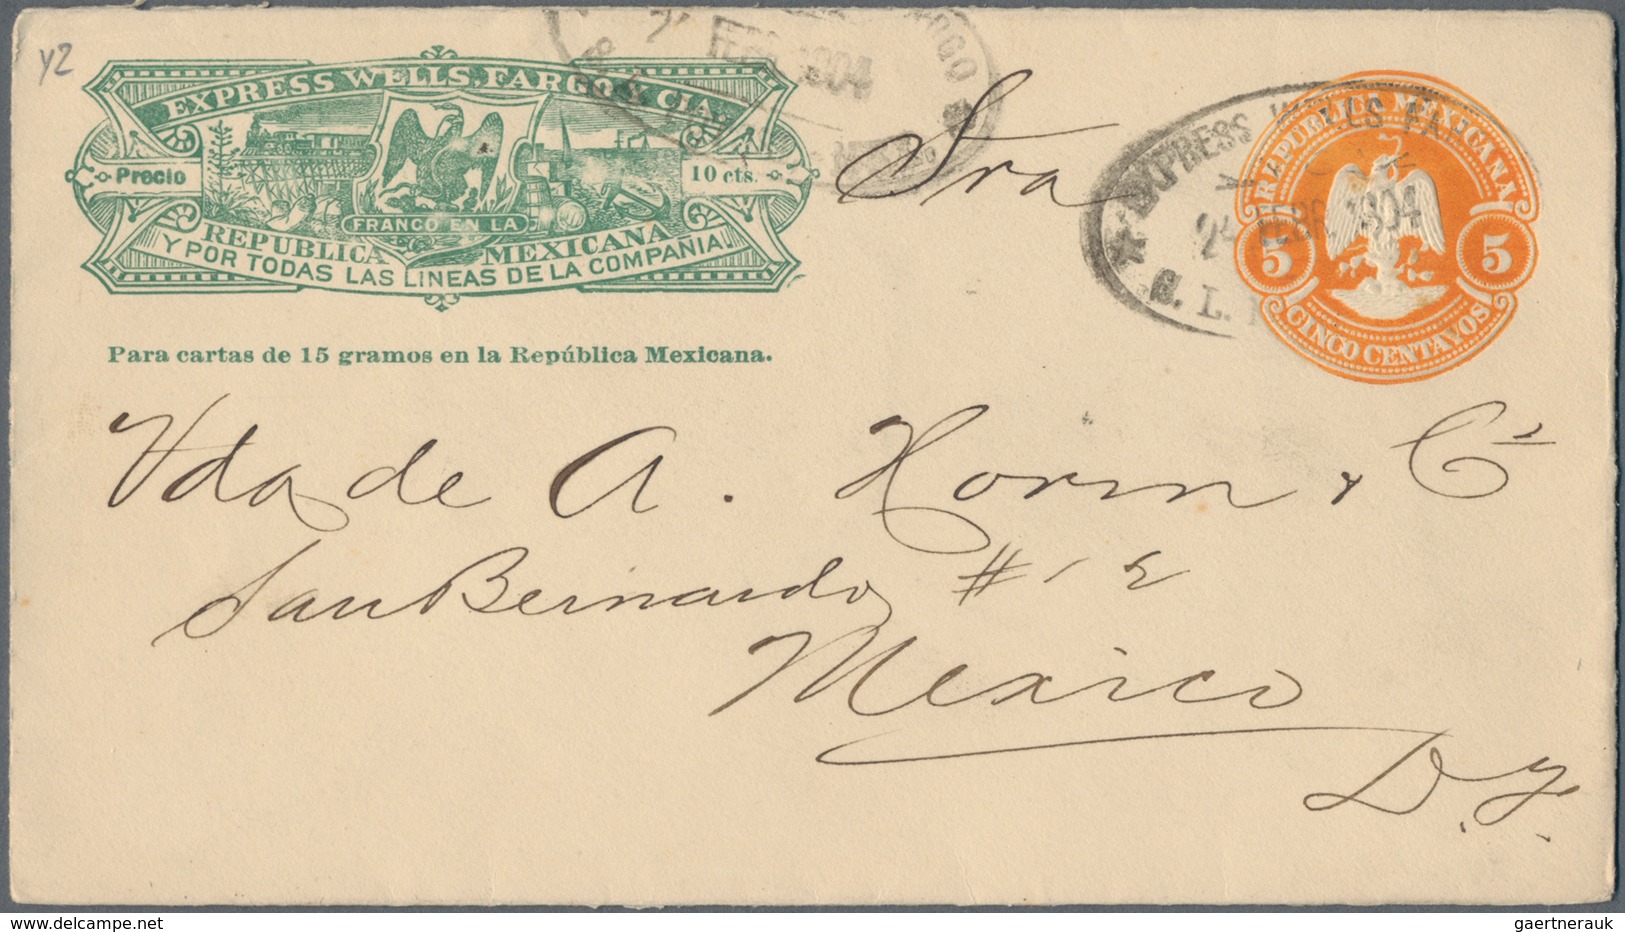 Y2
EXPRESS WELLS, FARGO & CIA.
Precio
10 cts.
FRANCO EN LA
REPUBLICA MEXICANA
Y POR TODAS LAS LINEAS DE LA COMPAÑIA.
Para cartas de 15 gramos en la República Mexicana.
FEBR 1904
RGO
EXPRESS WELLS FA
24 FEBR 1904
S. L.
REPUBLICA MEXICANA
5 5
CINCO CENTAVOS
Sra
Vda de A. Horn & Cª
San Bernardo # 12
Mexico
D. F.
gaertnerauk